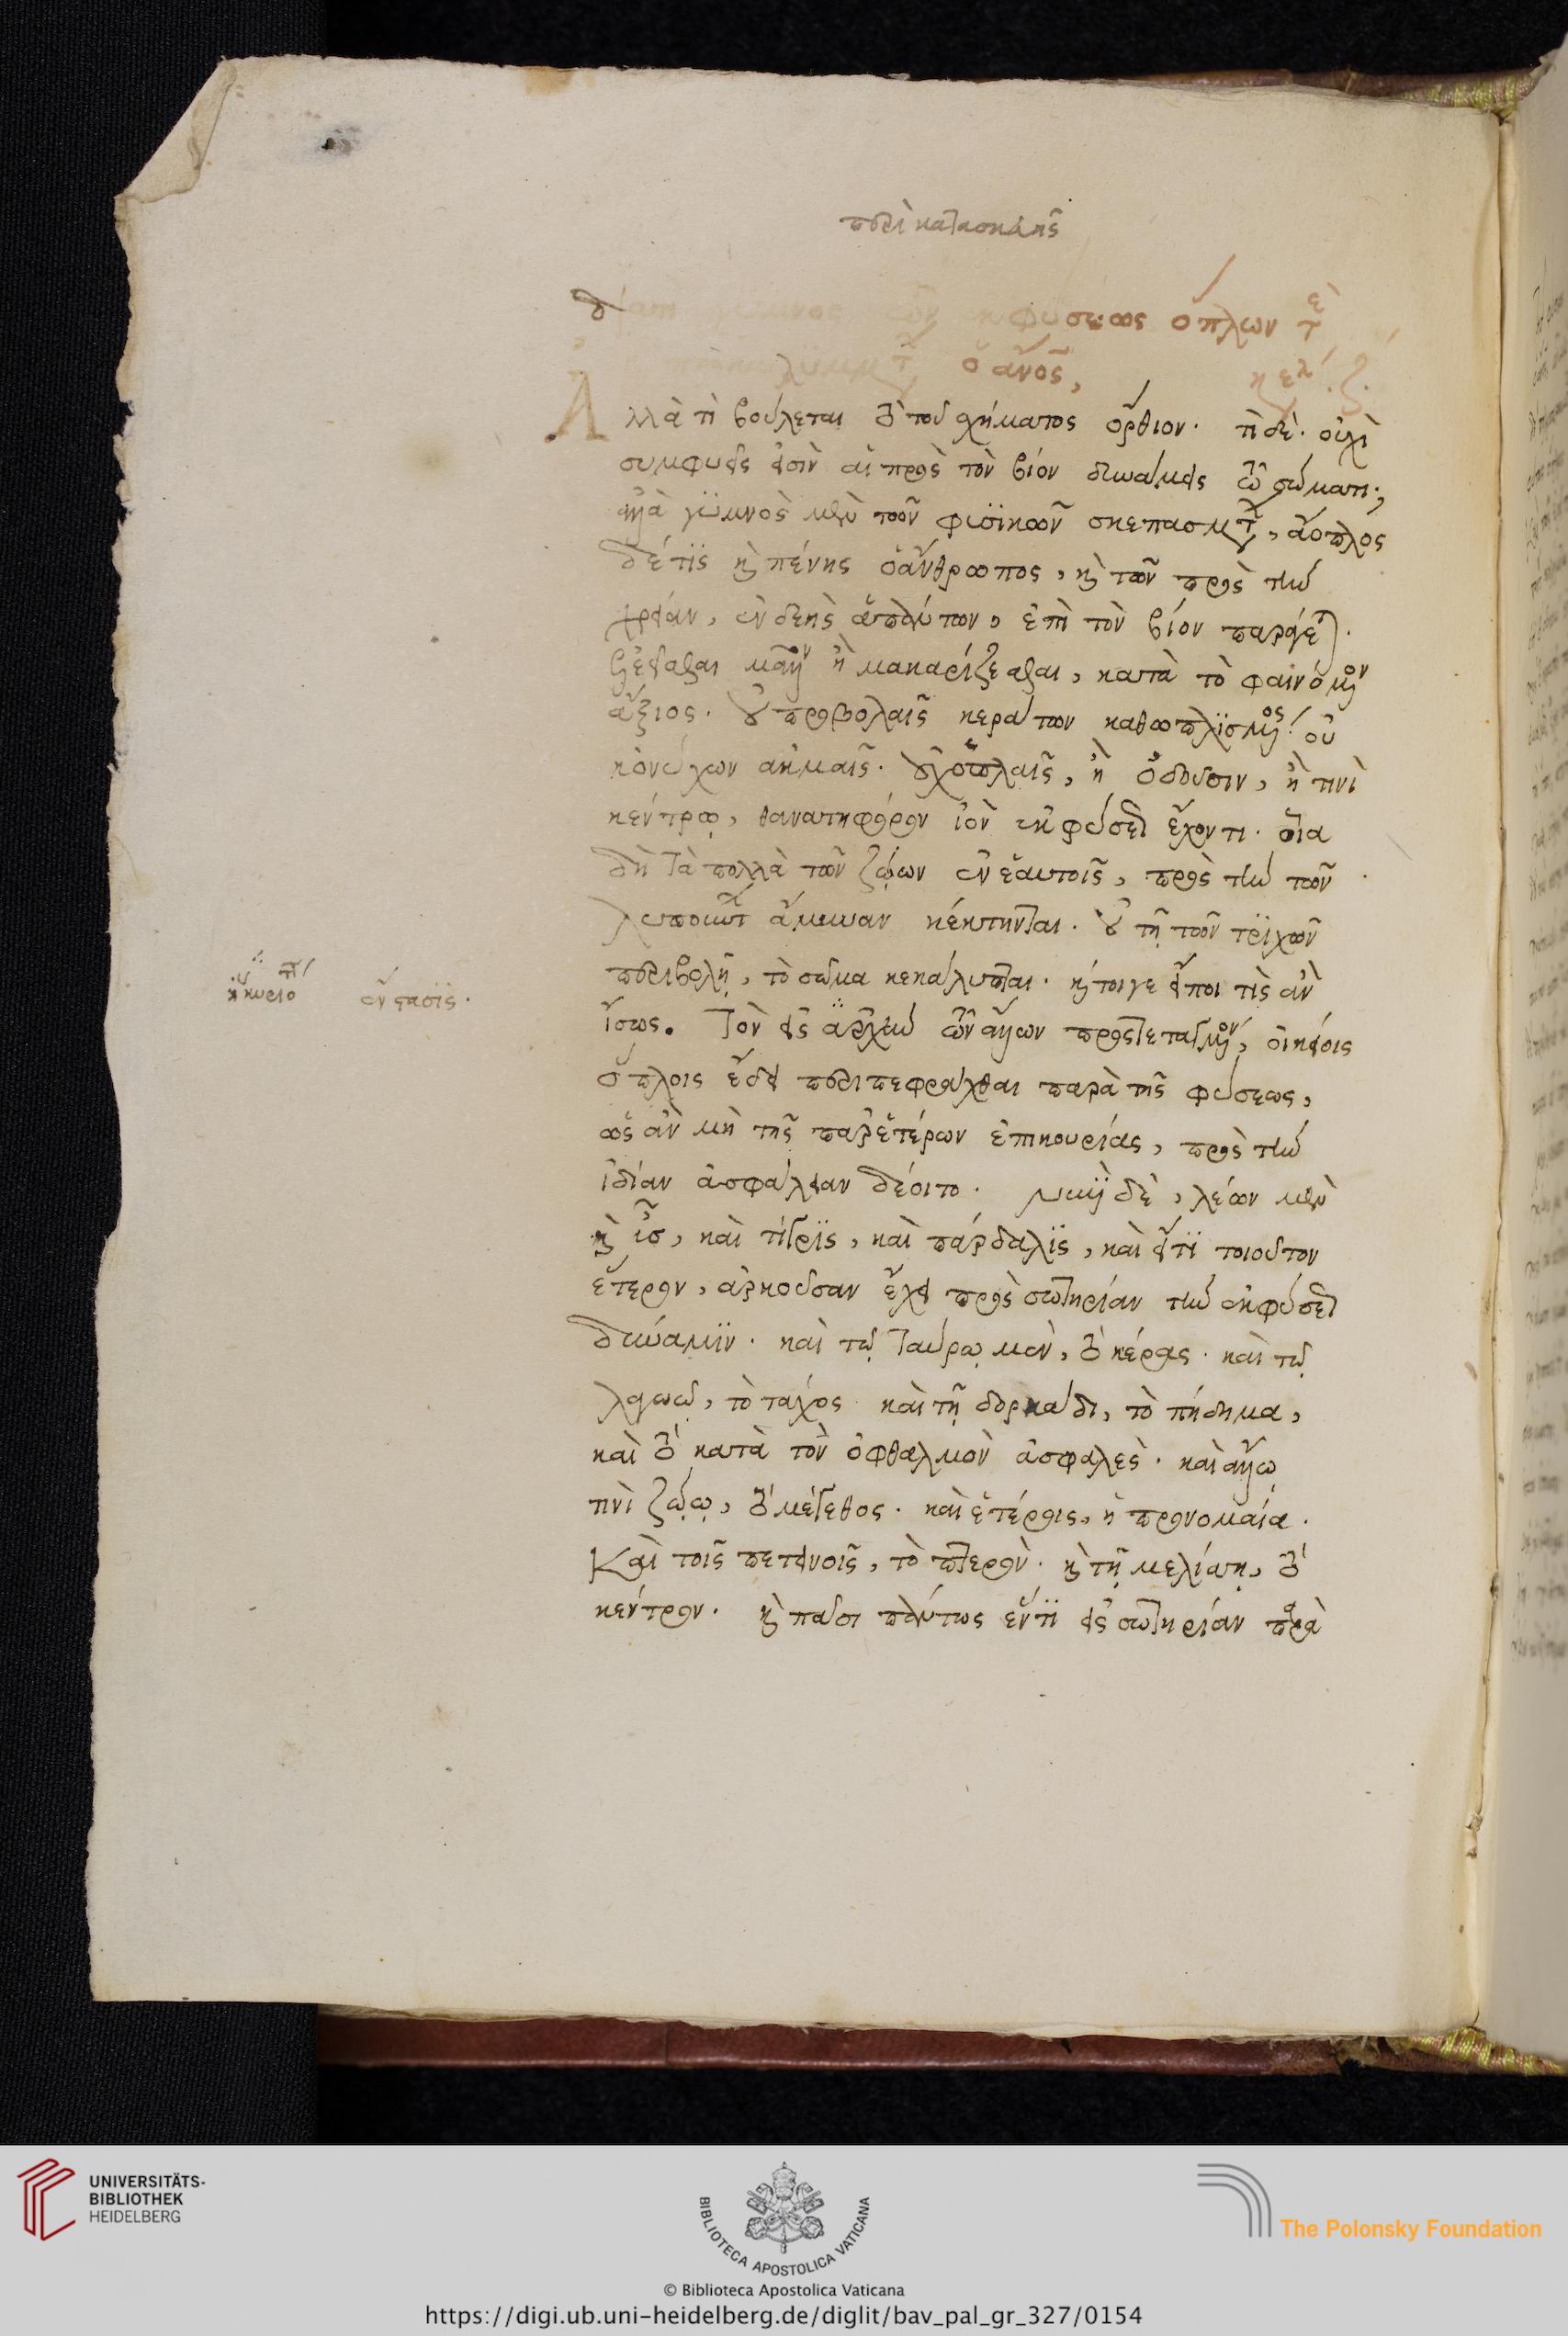 περὶ κατασκευῆς
φύσεως ὅπλων τὲ
ὁ ἄνος, κεφ. ζ.
Ἀλλὰ τί βούλεται τὸ τοῦ σχήματος ὄρθιον· τί δέ· οὐχὶ
συμφυεῖς εἰσὶν αἱ πρὸς τὸν βίον δυνάμεις τῶ σώματι;
ἀλλὰ γυμνὸς μὲν τῶν φυσικῶν σκεπασμτ, ἄοπλος
δέ τις κ πένης ὁ ἄνθρωπος, κ τῶν πρὸς τὴν
χρείαν, ἐνδεὴς ἁπάντων, ἐπὶ τὸν βίον παράγετ.
ἐλεεῖσθαι μᾶλλον ἢ μακαρίζεσθαι, κατὰ τὸ φαινόμενον
ἄξιος. οὐ προβολαῖς κεράτων καθωπλισμένος· οὐκ
ὀνύχων ἀκμαῖς. οὐχ ὁπλαῖς, ἢ ὀδοῦσιν, ἤ τινι
κέντρω, θανατηφόρον ἰὸν ἐκ φύσεως ἔχοντι. οἷα
δὴ τὰ πολλὰ τῶν ζώων ἐν ἑαυτοῖς, πρὸς τὴν τῶν
λυπούντ ἄμυναν κέκτηνται. οὐ τῆ τῶν τριχῶν
περιβολῆ, τὸ σῶμα κεκάλυπται. κ τοιγε εἴποι τὶς ἂν
ἔνστασις.
ἴσως. Τὸν εἰς ἀρχὴν τῶν ἄλλων προστεταγμένον, οἰκείοις
ὅπλοις ἔδει περιπεφράχθαι παρὰ τῆς φύσεως,
ὡς ἂν μὴ τῆς παρ ἑτέρων ἐπικουρίας, πρὸς τὴν
ἰδίαν ἀσφάλειαν δέοιτο. νυνὶ δὲ, λέων μὲν
κ ὗς, καὶ τίγρις, καὶ πάρδαλις, καὶ εἴ τι τοιοῦτον
ἕτερον, ἀρκοῦσαν ἔχει πρὸς σωτηρίαν τὴν ἐκ φύσεως
δύναμιν. καὶ τῷ ταύρῳ μὲν, τὸ κέρας. καὶ τῷ
λαγωῷ, τὸ τάχος. καὶ τῇ δορκάδι, τὸ πήδημα,
καὶ τὸ κατὰ τὸν ὀφθαλμὸν ἀσφαλὲς. καὶ ἄλλῳ
τινὶ ζώῳ, τὸ μέγεθος. καὶ ἑτέροις, ἡ προνομαία.
Καὶ τοῖς πετεινοῖς, τὸ πτερὸν. κ τῇ μελίσσῃ, τὸ
κέντρον. κ πᾶσι πάντως ἕν τι εἰς σωτηρίαν παρὰ
UNIVERSITÄTS-
BIBLIOTHEK
HEIDELBERG
BIBLIOTECA APOSTOLICA VATICANA
The Polonsky Foundation
© Biblioteca Apostolica Vaticana
https://digi.ub.uni-heidelberg.de/diglit/bav_pal_gr_327/0154